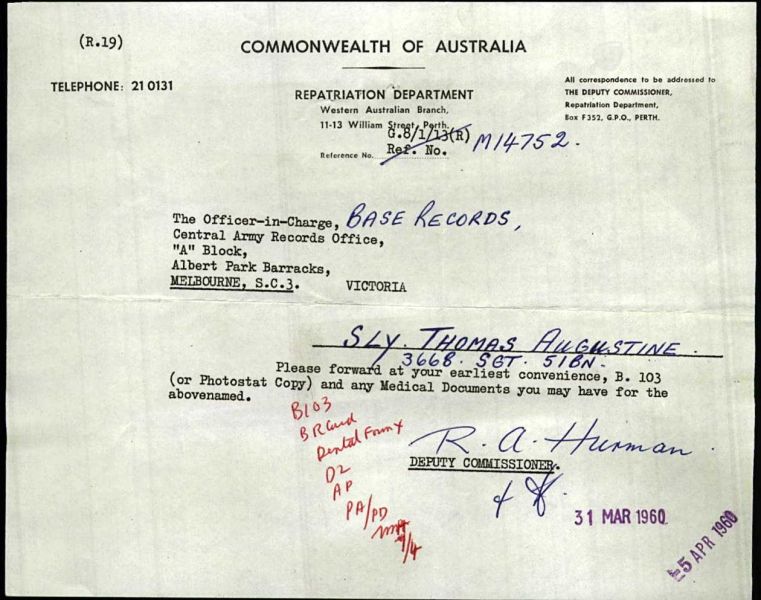 (R.19)
COMMONWEALTH OF AUSTRALIA
TELEPHONE: 21 0131
REPATRIATION DEPARTMENT
Western Australian Branch,
11-13 William Street, Perth.
All correspondence to be addressed to
THE DEPUTY COMMISSIONER,
Repatriation Department,
Box F352, G.P.O., PERTH.
G.8/1/13(R)
Reference No. Ref. No. M14752.
The Officer-in-Charge, BASE RECORDS,
Central Army Records Office,
"A" Block,
Albert Park Barracks,
MELBOURNE, S.C.3. VICTORIA
SLY. THOMAS AUGUSTINE.
3668. SGT. 51BN.
Please forward at your earliest convenience, B. 103
(or Photostat Copy) and any Medical Documents you may have for the
abovenamed.
B103
BR Card
Dental Form x
D2
AP
PA/PD
/4
R. A. Hurman
DEPUTY COMMISSIONER.
31 MAR 1960
5 APR 1960